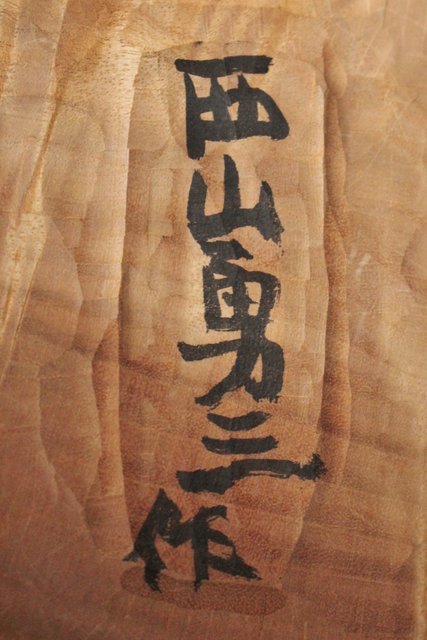 西山勇三作